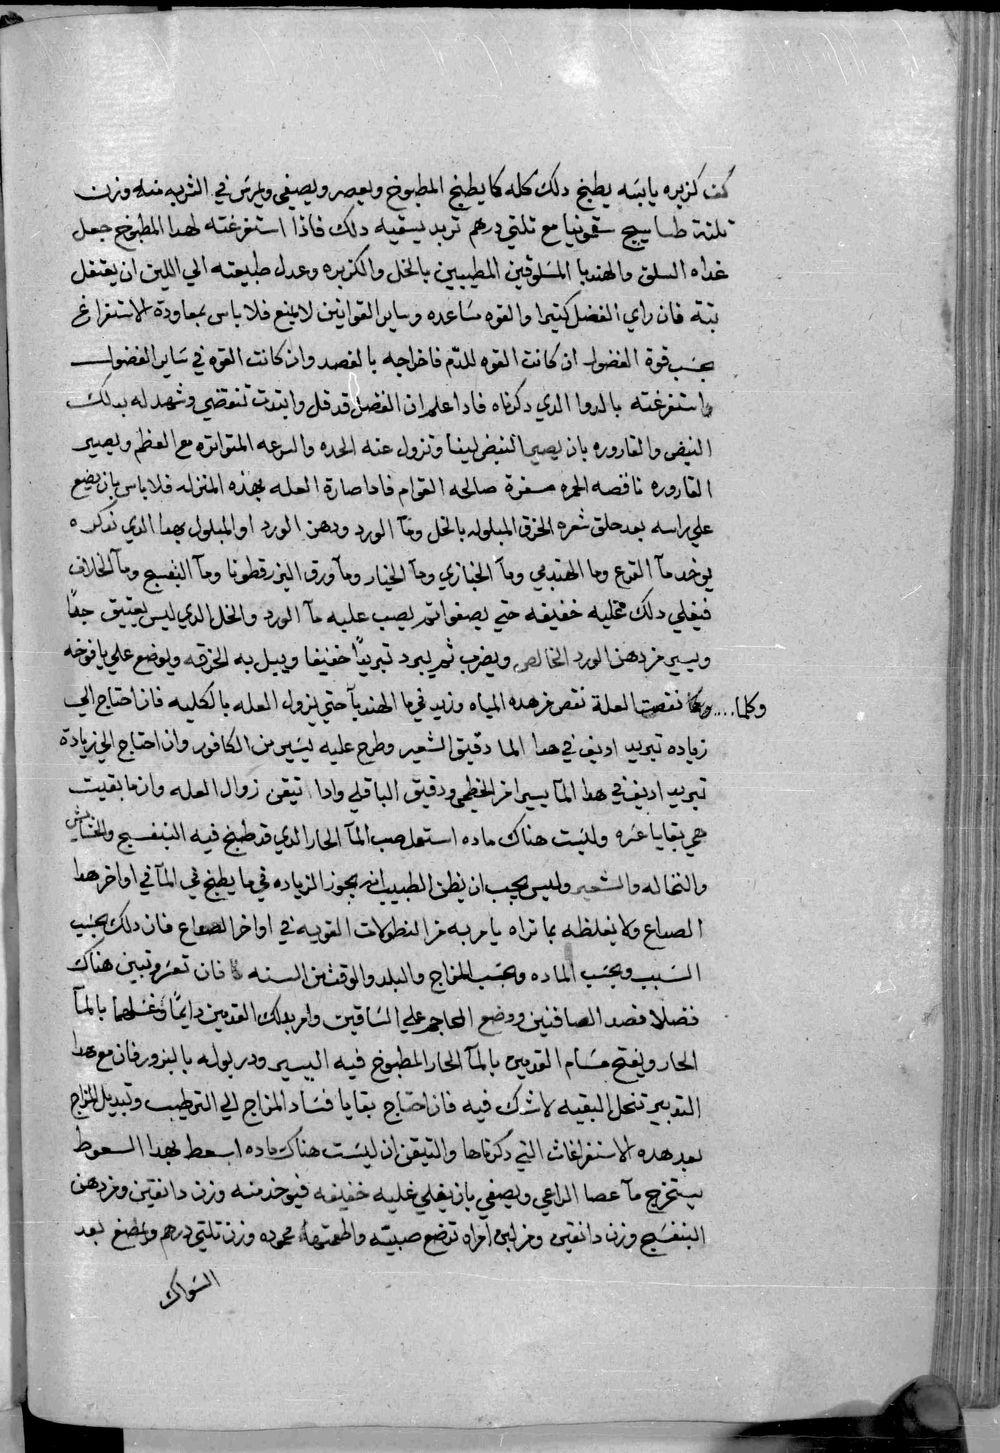 كف كزبره يابسه يطبخ دلك كله كما يطبخ المطبوخ ويعصر ويصفي ويمرس في الشربه منه وزن
ثلثة طساسيج سقمونيا مع ثلتي درهم تربد يسقيه دلك فاذا استفرغته لهدا المطبوخ جعل
غداه السلق والهندبا المسلوقين المطيبين بالخل والكزبره وعدل طبيعته الي اللين ان يعتقل
بتة فان راي الفضل كثيرا والقوه مساعده وساير القوانين لا يمنع فلا باس بمعاودة الاستفراغ
بحسب قوة الفضول ان كانت القوه للدم فاخراجه بالفصد وان كانت القوه في ساير الفضول
واستفرغته بالدوا الدي دكرناه فادا علم ان الفضل قد قل وابتدت تنقضي وشهد له بدلك
النبض والقاروره بان يصير النبض لينا وتزول عنه الحده والسرعه المتواتره مع العظم ويصير
القاروره ناقصه الحمره مسفرة صالحه القوام فادا صارة العله بهذه المنزله فلا باس بان يضع
علي راسه بعد حلق شعره الخرق المبلوله بالخل ومآ الورد ودهن الورد او المبلول بهدا الدي ندكره
يوخد مآ القرع وما الهندبي ومآ الخبازي ومآ الخيار ومآ ورق البزرقطونا ومآ البنفسج ومآ الخلاف
فيغلي دلك غليه خفيفه حتي يصفوا تم يصب عليه مآ الورد والخل الدي ليس بعتيق جدا
ويسير من دهن الورد الخالص ويضرب ثم يبرد تبريدا خفيفا ويبل به الخرقه ويوضع علي يافوخه
وكلما .... نقصت العلة نقص من هده المياه وزيد في ما الهندبآ حتي يزول العله بالكليه فان احتاج الي
زياده تبريد اديف في هدا الما دقيق الشعير وطرح عليه يسير من الكافور وان احتاج الي زيادة
تبريد اديف في هدا المآ يسيرا من الخطمي ودقيق الباقلي وادا تيقن زوال العله وان ما بقيت
هي بقايا عره وليست هناك ماده استعمل صب المآ الحار الدي قد طبخ فيه البنفسج والخشخاش
والنخاله والشعير وليس يجب ان يظن الطبيب انه يجوز الزياده في ما يطبخ في المآ في اواخر هدا
الصداع ولا نغلظه بما نراه يامر به من النطولات القويه في اواخر الصداع فان دلك بحسب
السبب وبحسب الماده وبحسب المزاج والبلد والوقت من السنه فان تعسر وتبين هناك
فضلا فصد الصافنين ووضع المحاجم علي الساقين وامر بدلك القدمين دايمًا وغسلهما بالمآ
الحار ويفتح مسام القدمين بالمآ الحار المطبوخ فيه اليسير ودر بوله بالبزور فان مع هدا
التدبير تنحل البقيه لا شك فيه فان احتاج بقايا فساد المزاج الي الترطيب وتبديل المزاج
بعد هده الاستفراغات التي دكرناها والتيقن ان ليست هناك ماده اسعط بهدا السعوط
يستخرج مآ عصا الراعي ويصفي بان يغلي غليه خفيفه فيوخد منه وزن دانقين ومن دهن
البنفسج وزن دانقين ومن لبن امراه ترضع صبيته واطعمتها محموده وزن ثلتي درهم ويمضغ بعد
السواك